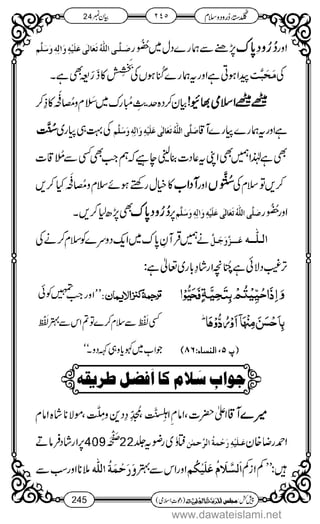 بیان نمبر 24
٢٤٥
گلدستۂ دُرود و سلام
اور دُرُودِ پاک پڑھنے سے ہمارے دل میں حُضُور صَلَّی اللہُ تَعَالٰی عَلَیْہِ وَاٰلِہٖ وَسَلَّم
کی مَحَبَّت پیدا ہوتی ہے اور یہ ہمارے گناہوں کی بَخْشِش کا ذَرِیعَہ بھی ہے۔
میٹھے میٹھے اسلامی بھائیو! بیان کردہ حدیثِ مُبارک میں سَلام و مُصافَحَہ کا ذِکر
ہے اور یہ ہمارے پیارے آقا صَلَّی اللہُ تَعَالٰی عَلَیْہِ وَاٰلِہٖ وَسَلَّم کی بہت ہی پیاری سُنَّت
بھی ہے لہٰذا ہمیں بھی اپنی یہ عادت بنا لینی چاہیے کہ ہم جب بھی کسی سے مُلاقات
کریں تو سلام کی سُنَّتوں اور آداب کا خیال رکھتے ہوئے سلام و مُصافَحَہ کیا کریں
اور حُضُور صَلَّی اللہُ تَعَالٰی عَلَیْہِ وَاٰلِہٖ وَسَلَّم پر دُرُودِ پاک بھی پڑھ لیا کریں۔
اللہ عَزَّوَجَلَّ نے ہمیں قرآنِ پاک میں ایک دوسرے کو سلام کرنے کی
ترغیب دلائی ہے چنانچہ ارشادِ باری تعالیٰ ہے:
وَ اِذَا حُیِّیْتُمْ بِتَحِیَّةٍ فَحَیُّوْا ترجمۂ کنزالایمان: ”اور جب تمہیں کوئی
بِاَحْسَنَ مِنْهَاۤ اَوْ رُدُّوْهَاؕ کسی لفظ سے سلام کرے تو تم اس سے بہتر لفظ
(پ ٥، النساء: ٨٦) جواب میں کہو یا وہی کہہ دو۔“
جوابِ سَلام کا افضل طریقہ
میرے آقا اعلیٰ حضرت، امامِ اہلسنّت، مُجَدِّدِ دین و ملّت، مولانا شاہ امام
احمد رضا خان عَلَیْہِ رَحْمَۃُ الرَّحْمٰن فتاوٰی رضویہ جلد 22 صَفْحَہ 409 پر ارشاد فرماتے
ہیں: ”کم از کم اَلسَّلَامُ عَلَیْکُمْ اور اس سے بہتر وَرَحْمَۃُ اللہ ملانا اور سب سے
245
(دعوتِ اسلامی)
www.dawateislami.net